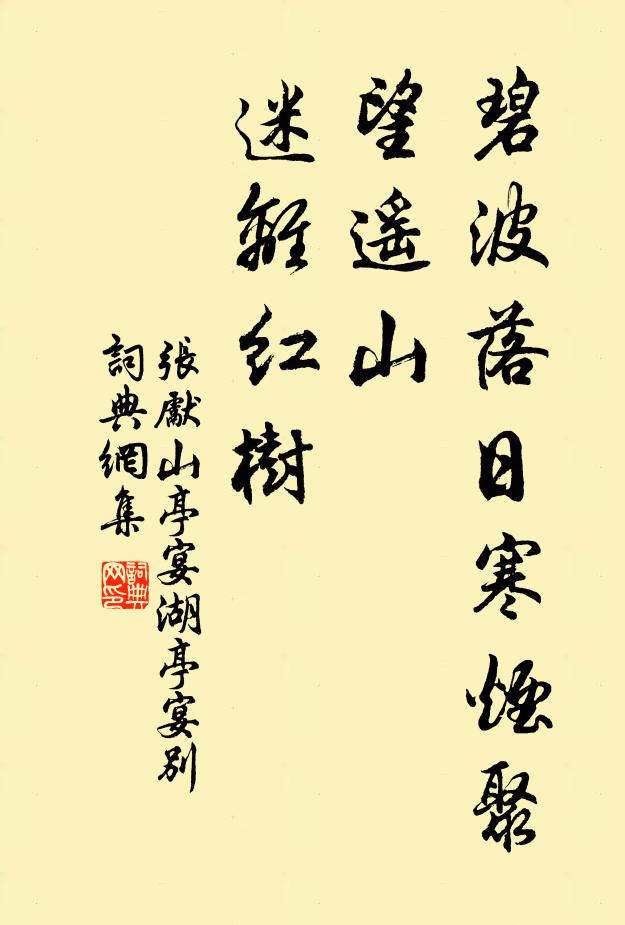 碧波落日寒煙聚
望遥山
迷離紅樹
張獻山亭宴湖亭宴別
詞典網集
詞典网印